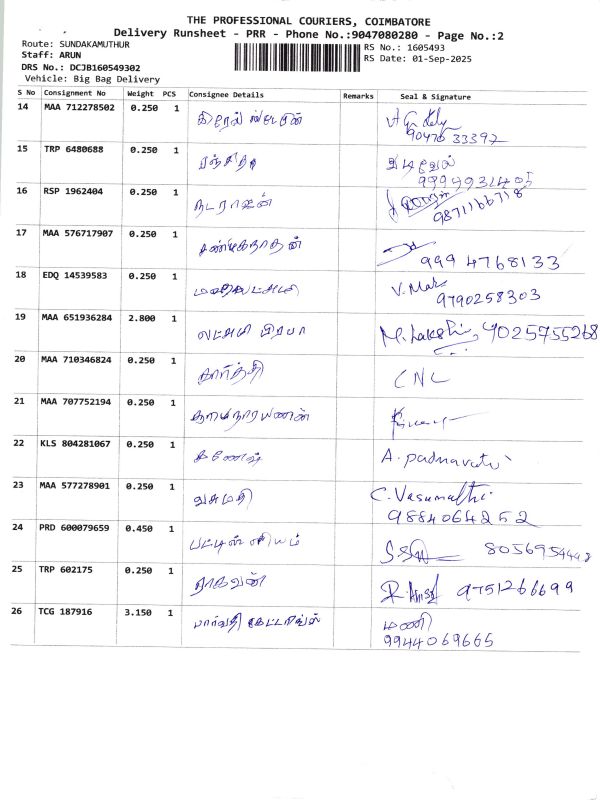 THE PROFESSIONAL COURIERS, COIMBATORE
Delivery Runsheet - PRR - Phone No.:9047080280 - Page No.:2
Route: SUNDAKAMUTHUR
RS No.: 1605493
Staff: ARUN
RS Date: 01-Sep-2025
DRS No.: DCJB160549302
Vehicle: Big Bag Delivery
S No Consignment No Weight PCS Consignee Details Remarks Seal & Signature
14 MAA 712278502 0.250 1
9047633397
15 TRP 6480688 0.250 1 ரஞ்சித்
வடிவேல்
9994931405
16 RSP 1962404 0.250 1 நடராஜன்
9871166718
17 MAA 576717907 0.250 1 சண்முகநாதன்
9994768133
18 EDQ 14539583 0.250 1 மகாலட்சுமி
9790258303
19 MAA 651936284 2.800 1 லட்சுமி பிரபா M. Lakshmi, 9025755268
20 MAA 710346824 0.250 1 கார்த்தி
CNC
21 MAA 707752194 0.250 1
22 KLS 804281067 0.250 1 கணேஷ் A. padmavati
23 MAA 577278901 0.250 1 வசுமதி C. Vasumathi
9884064252
24 PRD 600079659 0.450 1
25 TRP 602175 0.250 1 ராகவன் 9751266699
26 TCG 187916 3.150 1 பார்வதி கேட்டரிங்ஸ் மணி
9944069665